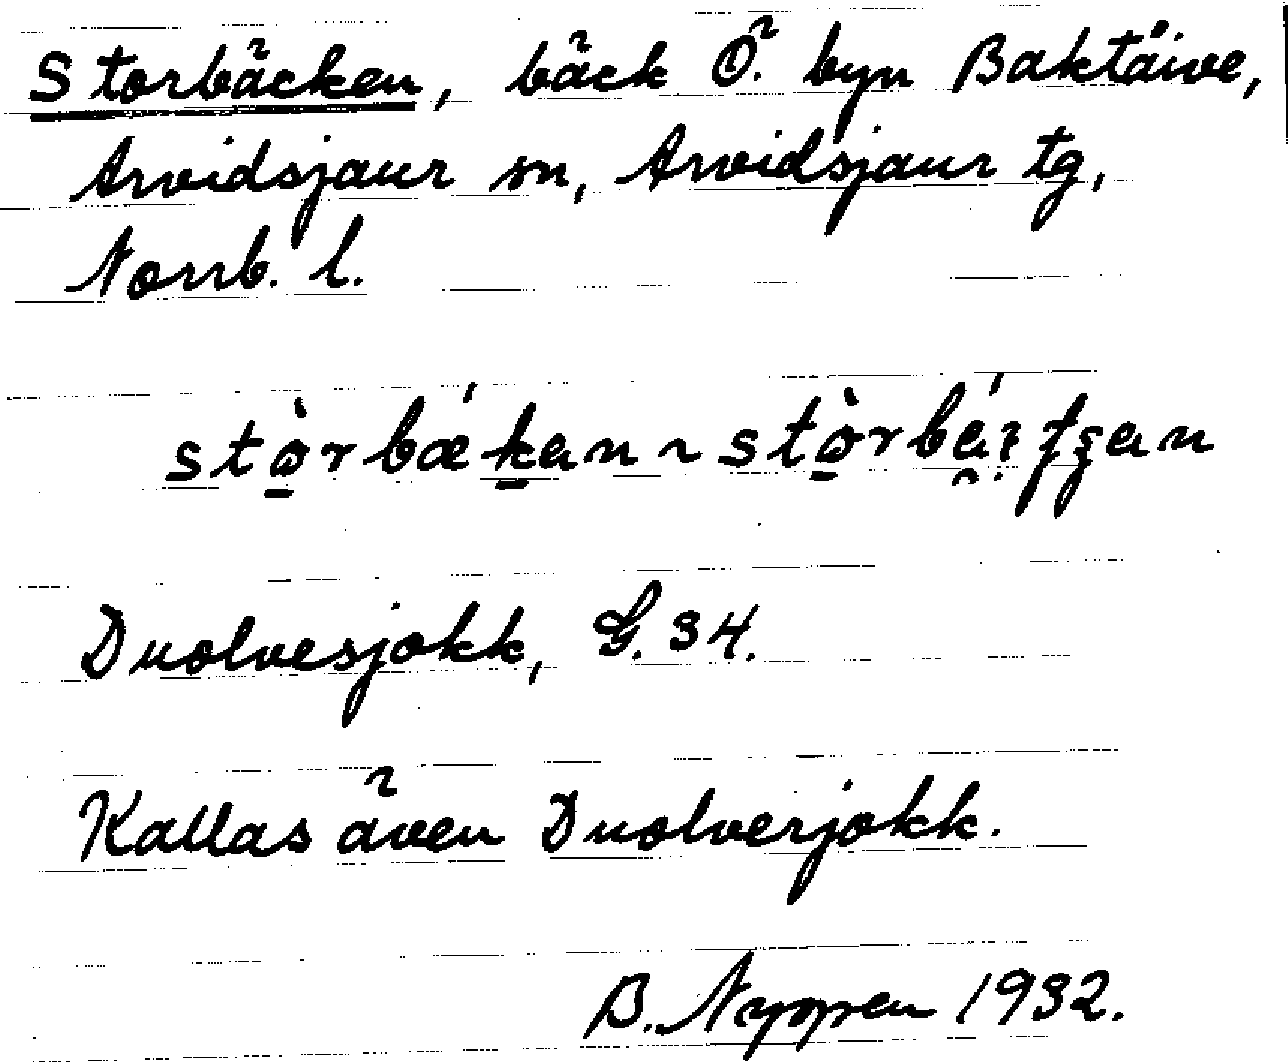 Storbäcken, bäck Ö. byn Baktåive,
Arvidsjaur sn, Arvidsjaur tg,
Norrb. l.
Duolvesjokk, G. 34.
Kallas även Duolverjokk.
B. Nyppen 1932.